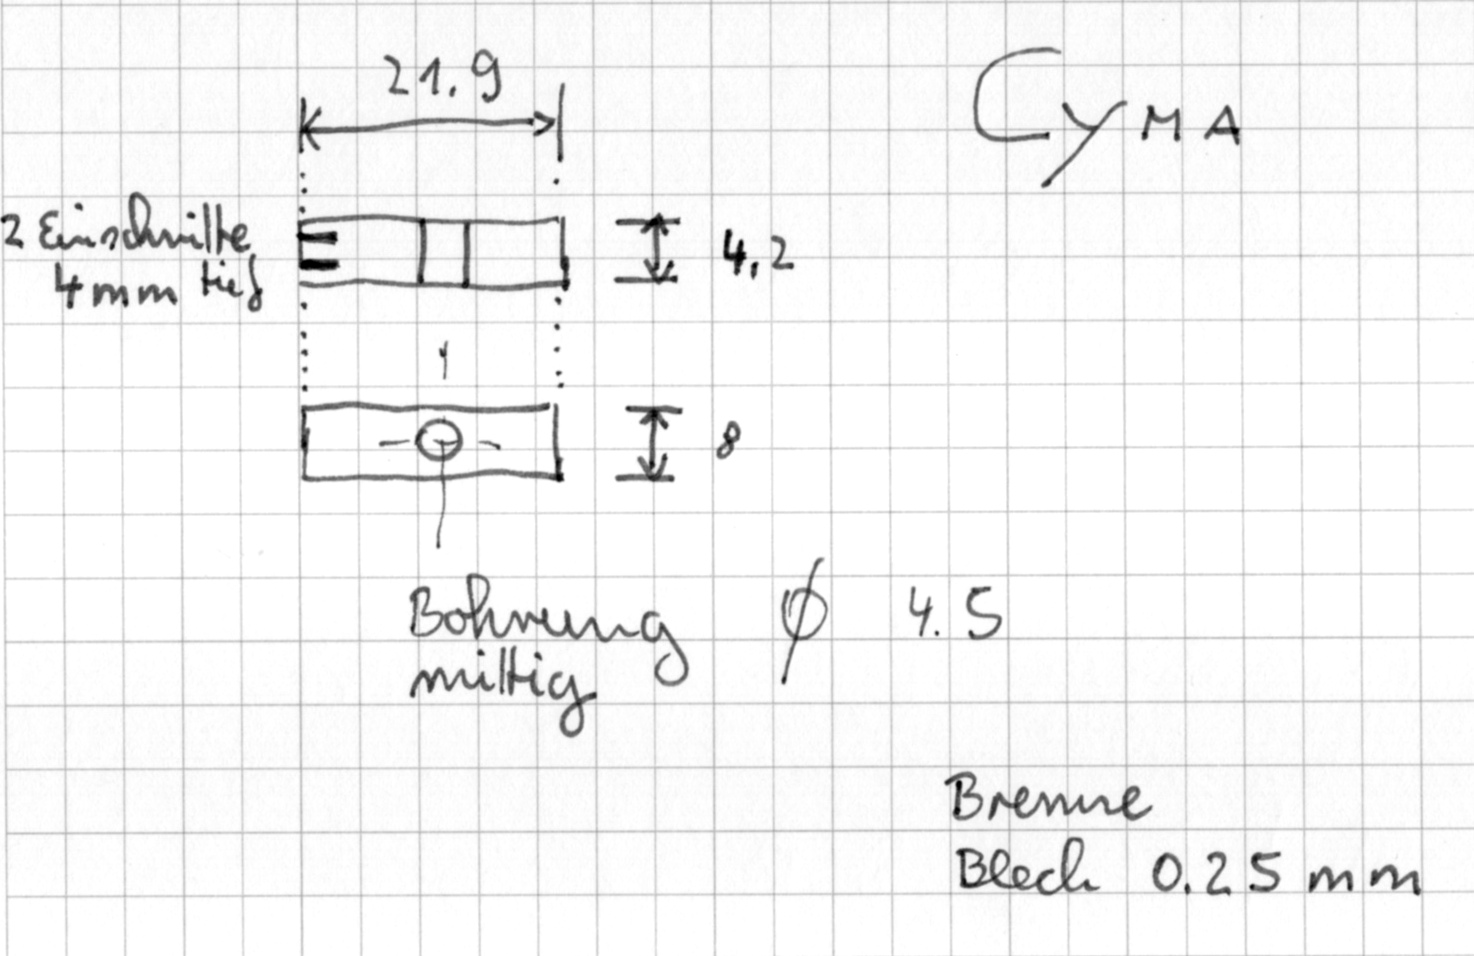 21.9
CYMA
2 Einschnitte
4mm tief
4,2
8
Bohrung ϕ 4.5
mittig
Bremse
Blech 0.25 mm